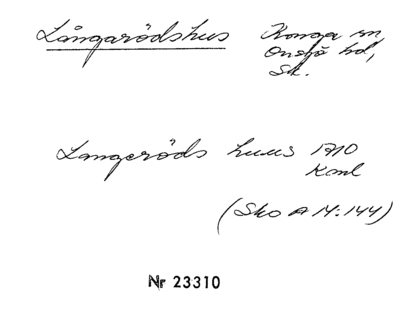 Långarödshus Konga sn,
Onsjö hd,
Sk.
Langeröds huus 1710
Koml
(Sko A 14:144)
Nr 23310